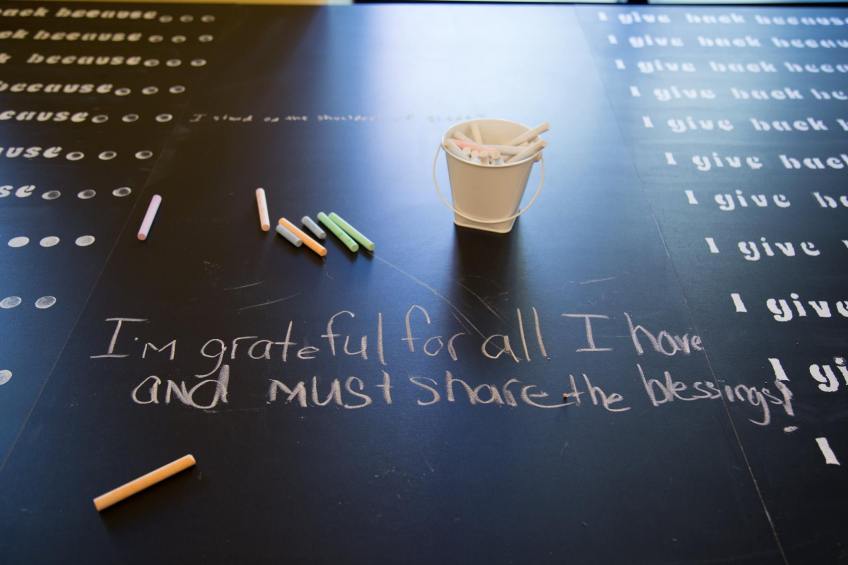 back because...
I give back because
back because...
I give back because
k because...
I give back becau
because...
I give back bec
cause...
I stand on the shoulders of
I give back b
use...
I give back
se...
I give b
...
I give
..
I give
I'm grateful for all I have
I gi
and must share the blessings!
I